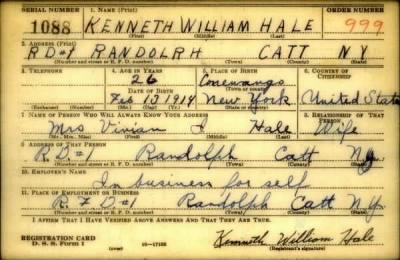 SERIAL NUMBER 1. NAME (Print) ORDER NUMBER
1088 KENNETH WILLIAM HALE 999
(First) (Middle) (Last)
2. ADDRESS (Print)
R D #1 RANDOLPH CATT N Y
(Number and street or R. F. D. number) (Town) (County) (State)
3. TELEPHONE 4. AGE IN YEARS 5. PLACE OF BIRTH 6. COUNTRY OF CITIZENSHIP
26 Conewango
DATE OF BIRTH (Town or county)
Feb 13 1914 New York United States
(Exchange) (Number) (Mo.) (Day) (Yr.) (State or country)
7. NAME OF PERSON WHO WILL ALWAYS KNOW YOUR ADDRESS 8. RELATIONSHIP OF THAT PERSON
Mrs Vivian I Hale Wife
(Mr., Mrs., Miss) (First) (Middle) (Last)
9. ADDRESS OF THAT PERSON
R.D. #1 Randolph Catt N.Y.
(Number and street or R. F. D. number) (Town) (County) (State)
10. EMPLOYER'S NAME
In business for self
11. PLACE OF EMPLOYMENT OR BUSINESS
R. F D #1 Randolph Catt N.Y.
(Number and street or R. F. D. number) (Town) (County) (State)
I AFFIRM THAT I HAVE VERIFIED ABOVE ANSWERS AND THAT THEY ARE TRUE.
REGISTRATION CARD
D. S. S. Form 1 16-17105 Kenneth William Hale
(Registrant's signature)